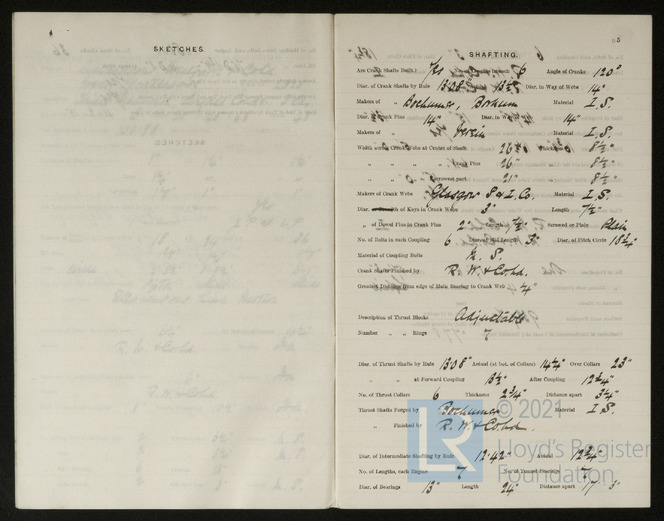 4
SKETCHES.
5
SHAFTING.
Are Crank Shafts Built? Yes 6 Angle of Cranks 120°
Diar. of Crank Shafts by Rule 13.08" Actual 13½" Diar. in Way of Webs 14"
Makers of „ „ Bochumer, Bochum Material I. S.
Diar. of Crank Pins 14" Length 14"
Makers of „ „ Verein Material I. S.
Width across Crank Webs at Centre of Shaft Thickness 8½"
„ „ „ „ Crank Pins 26" „ 8½"
„ „ „ „ Narrowest part 21" „ 8½"
Makers of Crank Webs Glasgow S & I. Co. Material I. S.
Diar. of Keys in Crank Webs 3" Length 7½"
„ of Dowel Pins in Crank Pins 2" Length Screwed or Plain Plain
No. of Bolts in each Coupling 6 Diar. at Mid Length 3" Diar. of Pitch Circle 18¼"
Material of Coupling Bolts S.
Crank Shafts Finished by R. W. & Co Ld.
Greatest Distance from edge of Main Bearing to Crank Web ¼"
Description of Thrust Blocks Adjustable
Number „ „ Rings 7
Diar. of Thrust Shafts by Rule 13.08" Actual (at bot. of Collars) 14¼" Over Collars 23"
„ „ at Forward Coupling 13½" After Coupling 12¾"
No. of Thrust Collars 6 Thickness 2¾" Distance apart 3¼"
Thrust Shafts Forged by Bochumer Material I. S.
„ Finished by R. W. & Co Ld.
Diar. of Intermediate Shafting by Rule 12.42" Actual 12¾"
No. of Lengths, each Engine 7 No. of Tunnel Bearings 7
Diar. of Bearings 13" Length 24" Distance apart 17' 3"
LR
© 2021
Lloyd's Register
Foundation